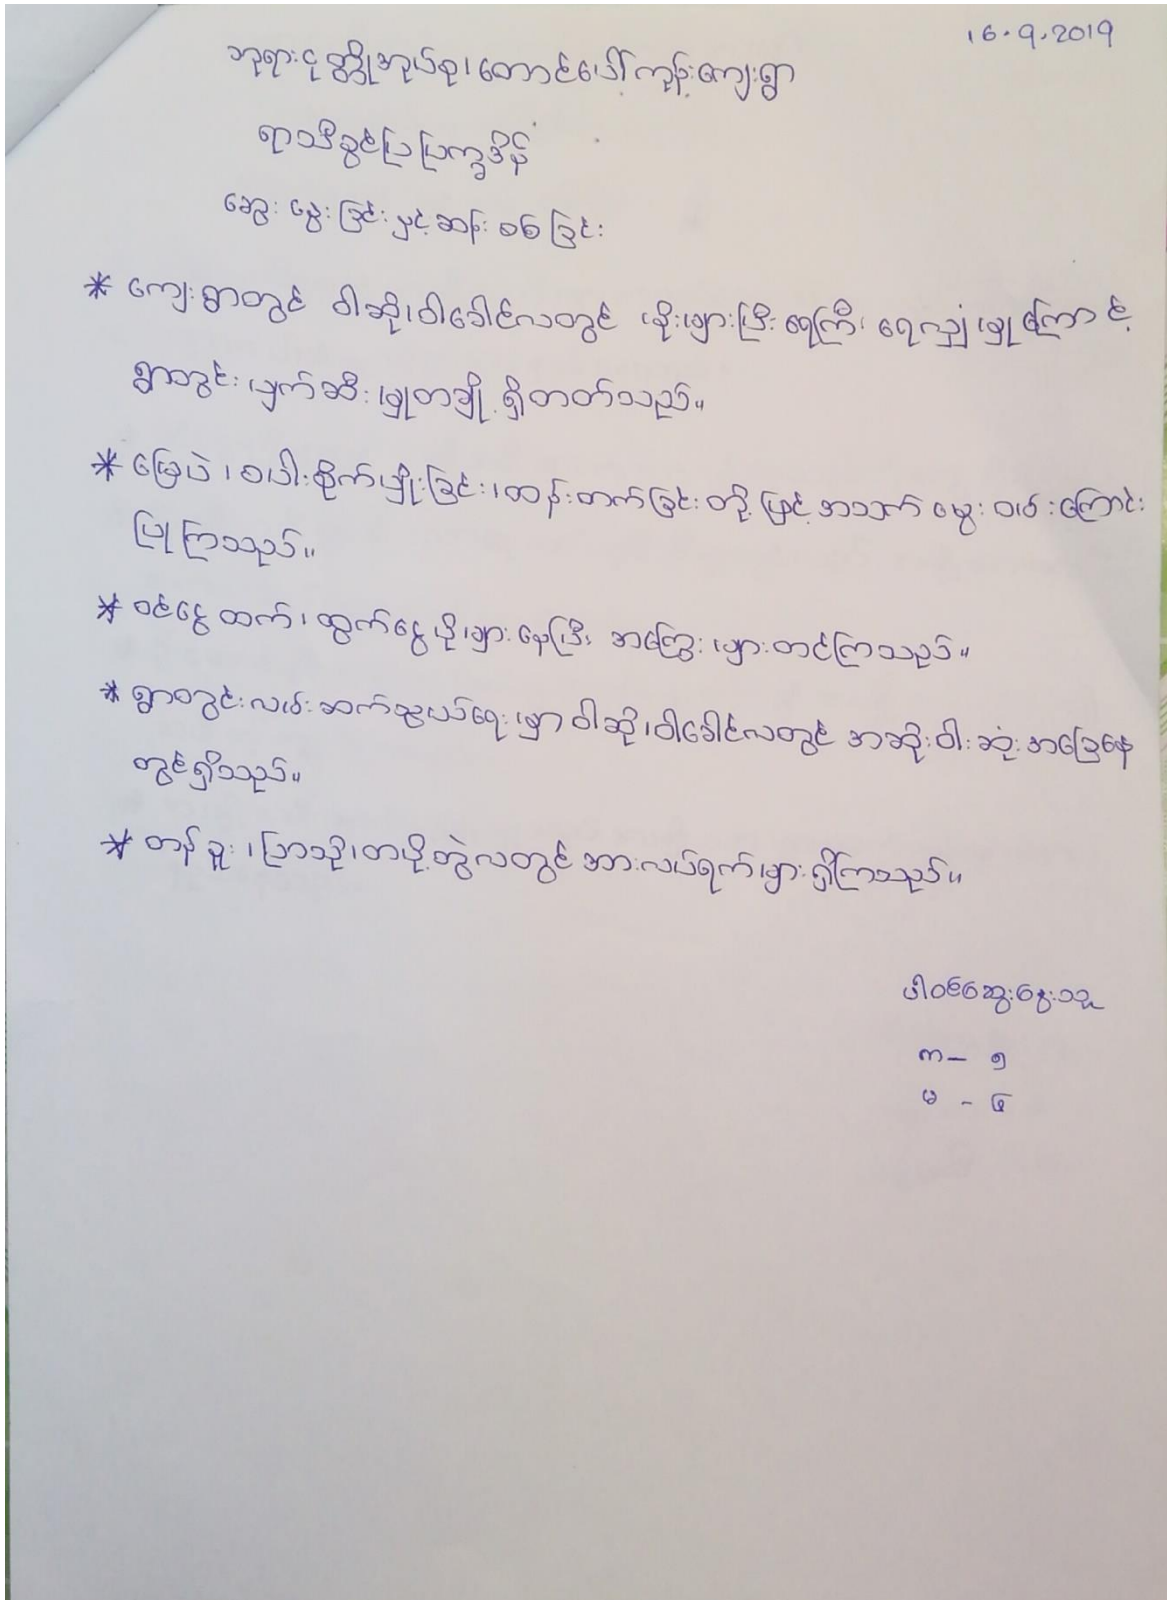 16.9.2019
ဘုရားငုတ္တိုအုပ်စု၊ တောင်ပေါ်ကုန်းကျေးရွာ
ရာသီခွင်ပြပြက္ခဒိန်
ဆွေးနွေးခြင်းနှင့်ဆန်းစစ်ခြင်း
* ကျေးရွာတွင် ဝါဆို၊ ဝါခေါင်လတွင် မိုးများပြီး ရေကြီး ရေလျှံမှုကြောင့်
ရွာတွင်းပျက်ဆီးမှုတချို့ရှိတတ်သည်။
* မြေပဲ၊ စပါးစိုက်ပျိုးခြင်း၊ ထန်းတက်ခြင်းတို့ဖြင့် အသက်မွေးဝမ်းကြောင်း
ပြုကြသည်။
* ဝင်ငွေထက်၊ ထွက်ငွေပိုများနေပြီး အကြွေးများတင်ကြသည်။
* ရွာတွင်းလမ်းဆက်သွယ်ရေးမှာ ဝါဆို၊ ဝါခေါင်လတွင် အဆိုးဝါးဆုံးအခြေနေ
တွင်ရှိသည်။
* တန်ခူး၊ ပြာသို၊ တပို့တွဲလတွင် အားလပ်ရက်များရှိကြသည်။
ပါဝင်ဆွေးနွေးသူ
က - ၅
မ - ၄